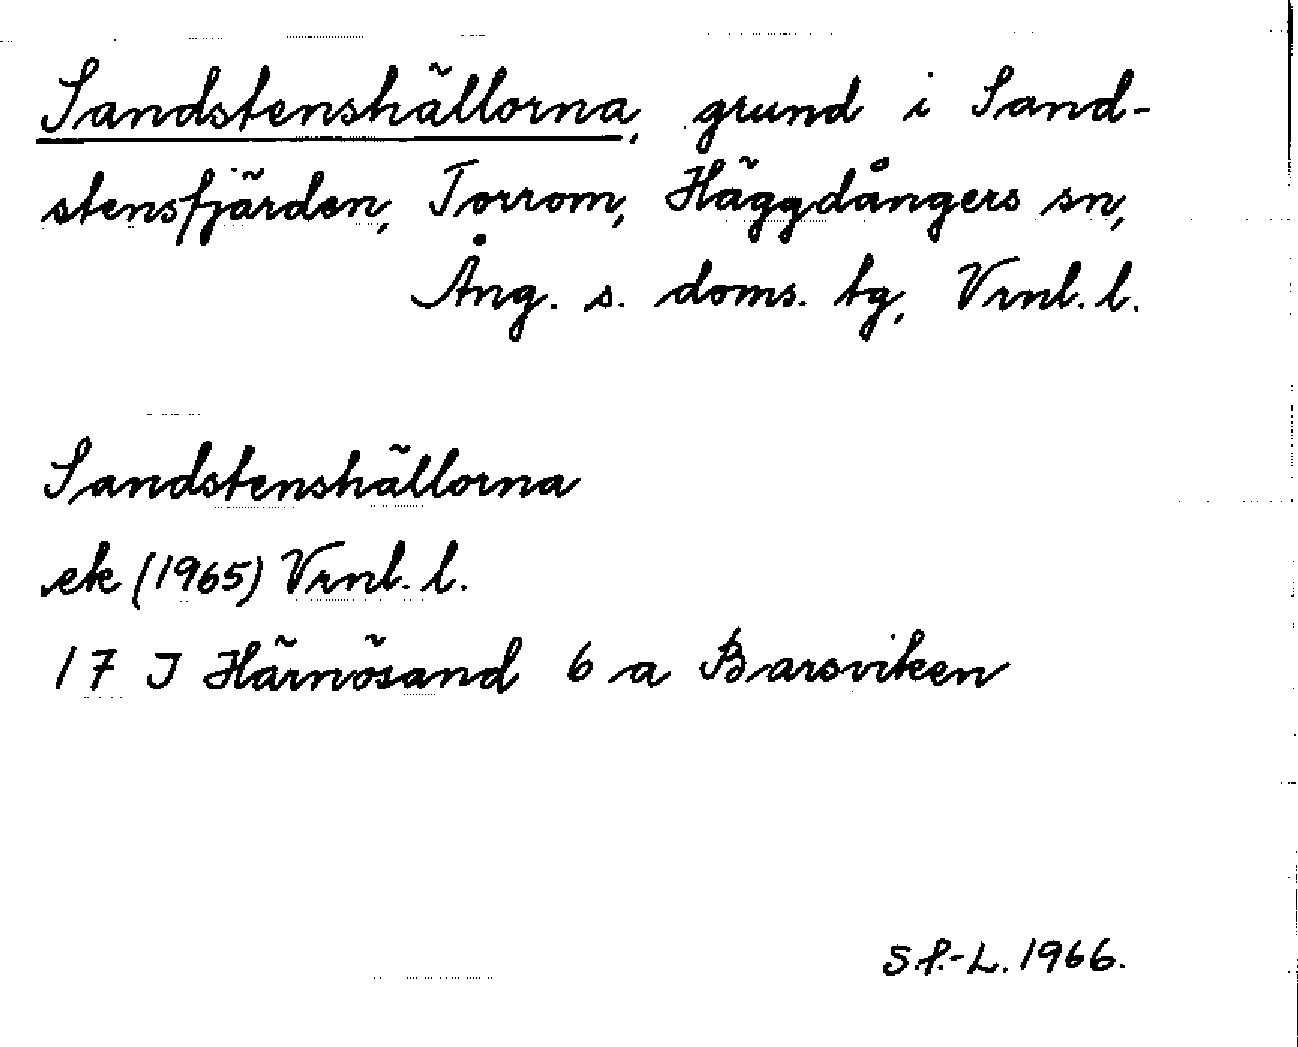 Sandstenshällorna, grund i Sand-
stensfjärden, Torrom, Häggdångers sn,
Ång. s. doms. tg, Vrnl. l.
Sandstenshällorna
ek (1965) Vrnl. l.
17 J Härnösand 6 a Barsviken
S.P.-L. 1966.